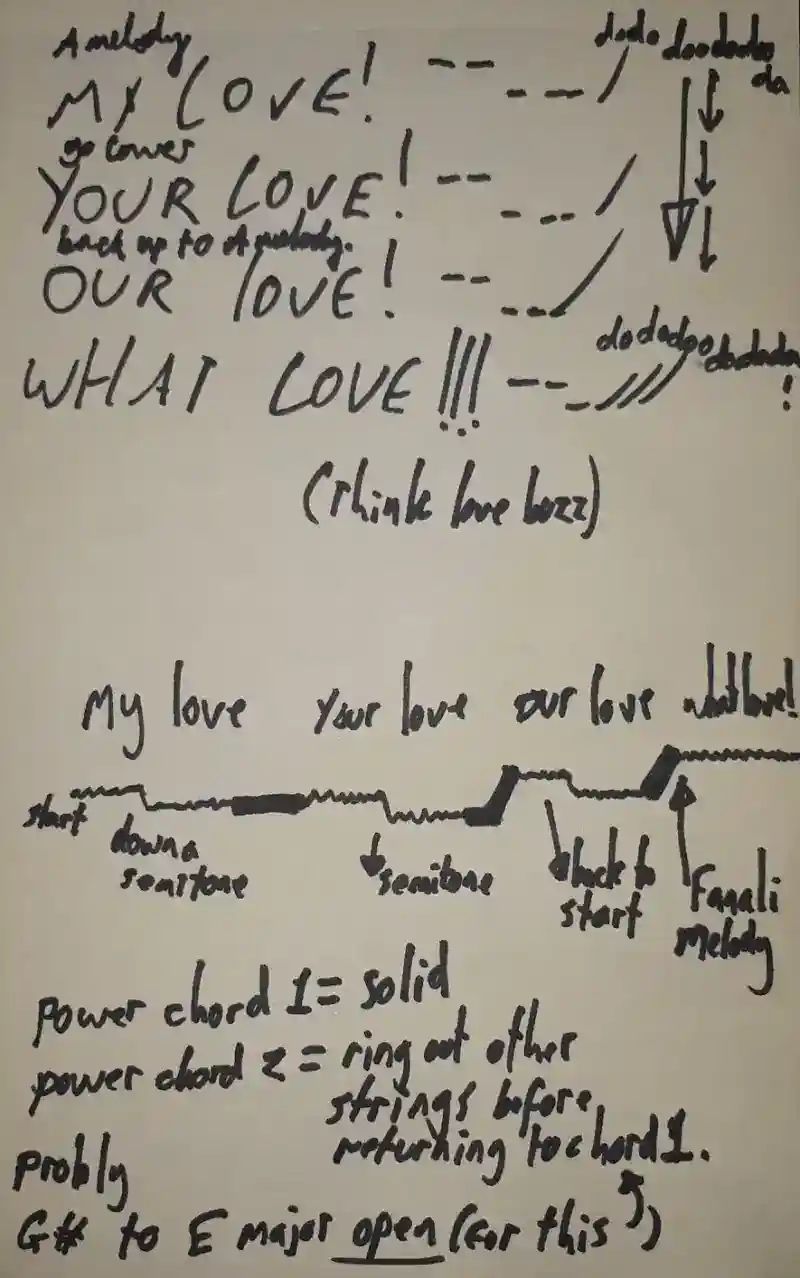 A melody
dodo doododoo
da
MY LOVE!
go lower
YOUR LOVE!
back up to A melody.
OUR LOVE!
dododoo dododoo
!
WHAT LOVE!!!
(Think love buzz)
My love your love our love whatlove!
start
down a
semitone
semitone
back to
start
Fanali
Melody
power chord 1 = solid
power chord 2 = ring out other
strings before
returning to chord 1.
Probly
G# to E major open (For this)